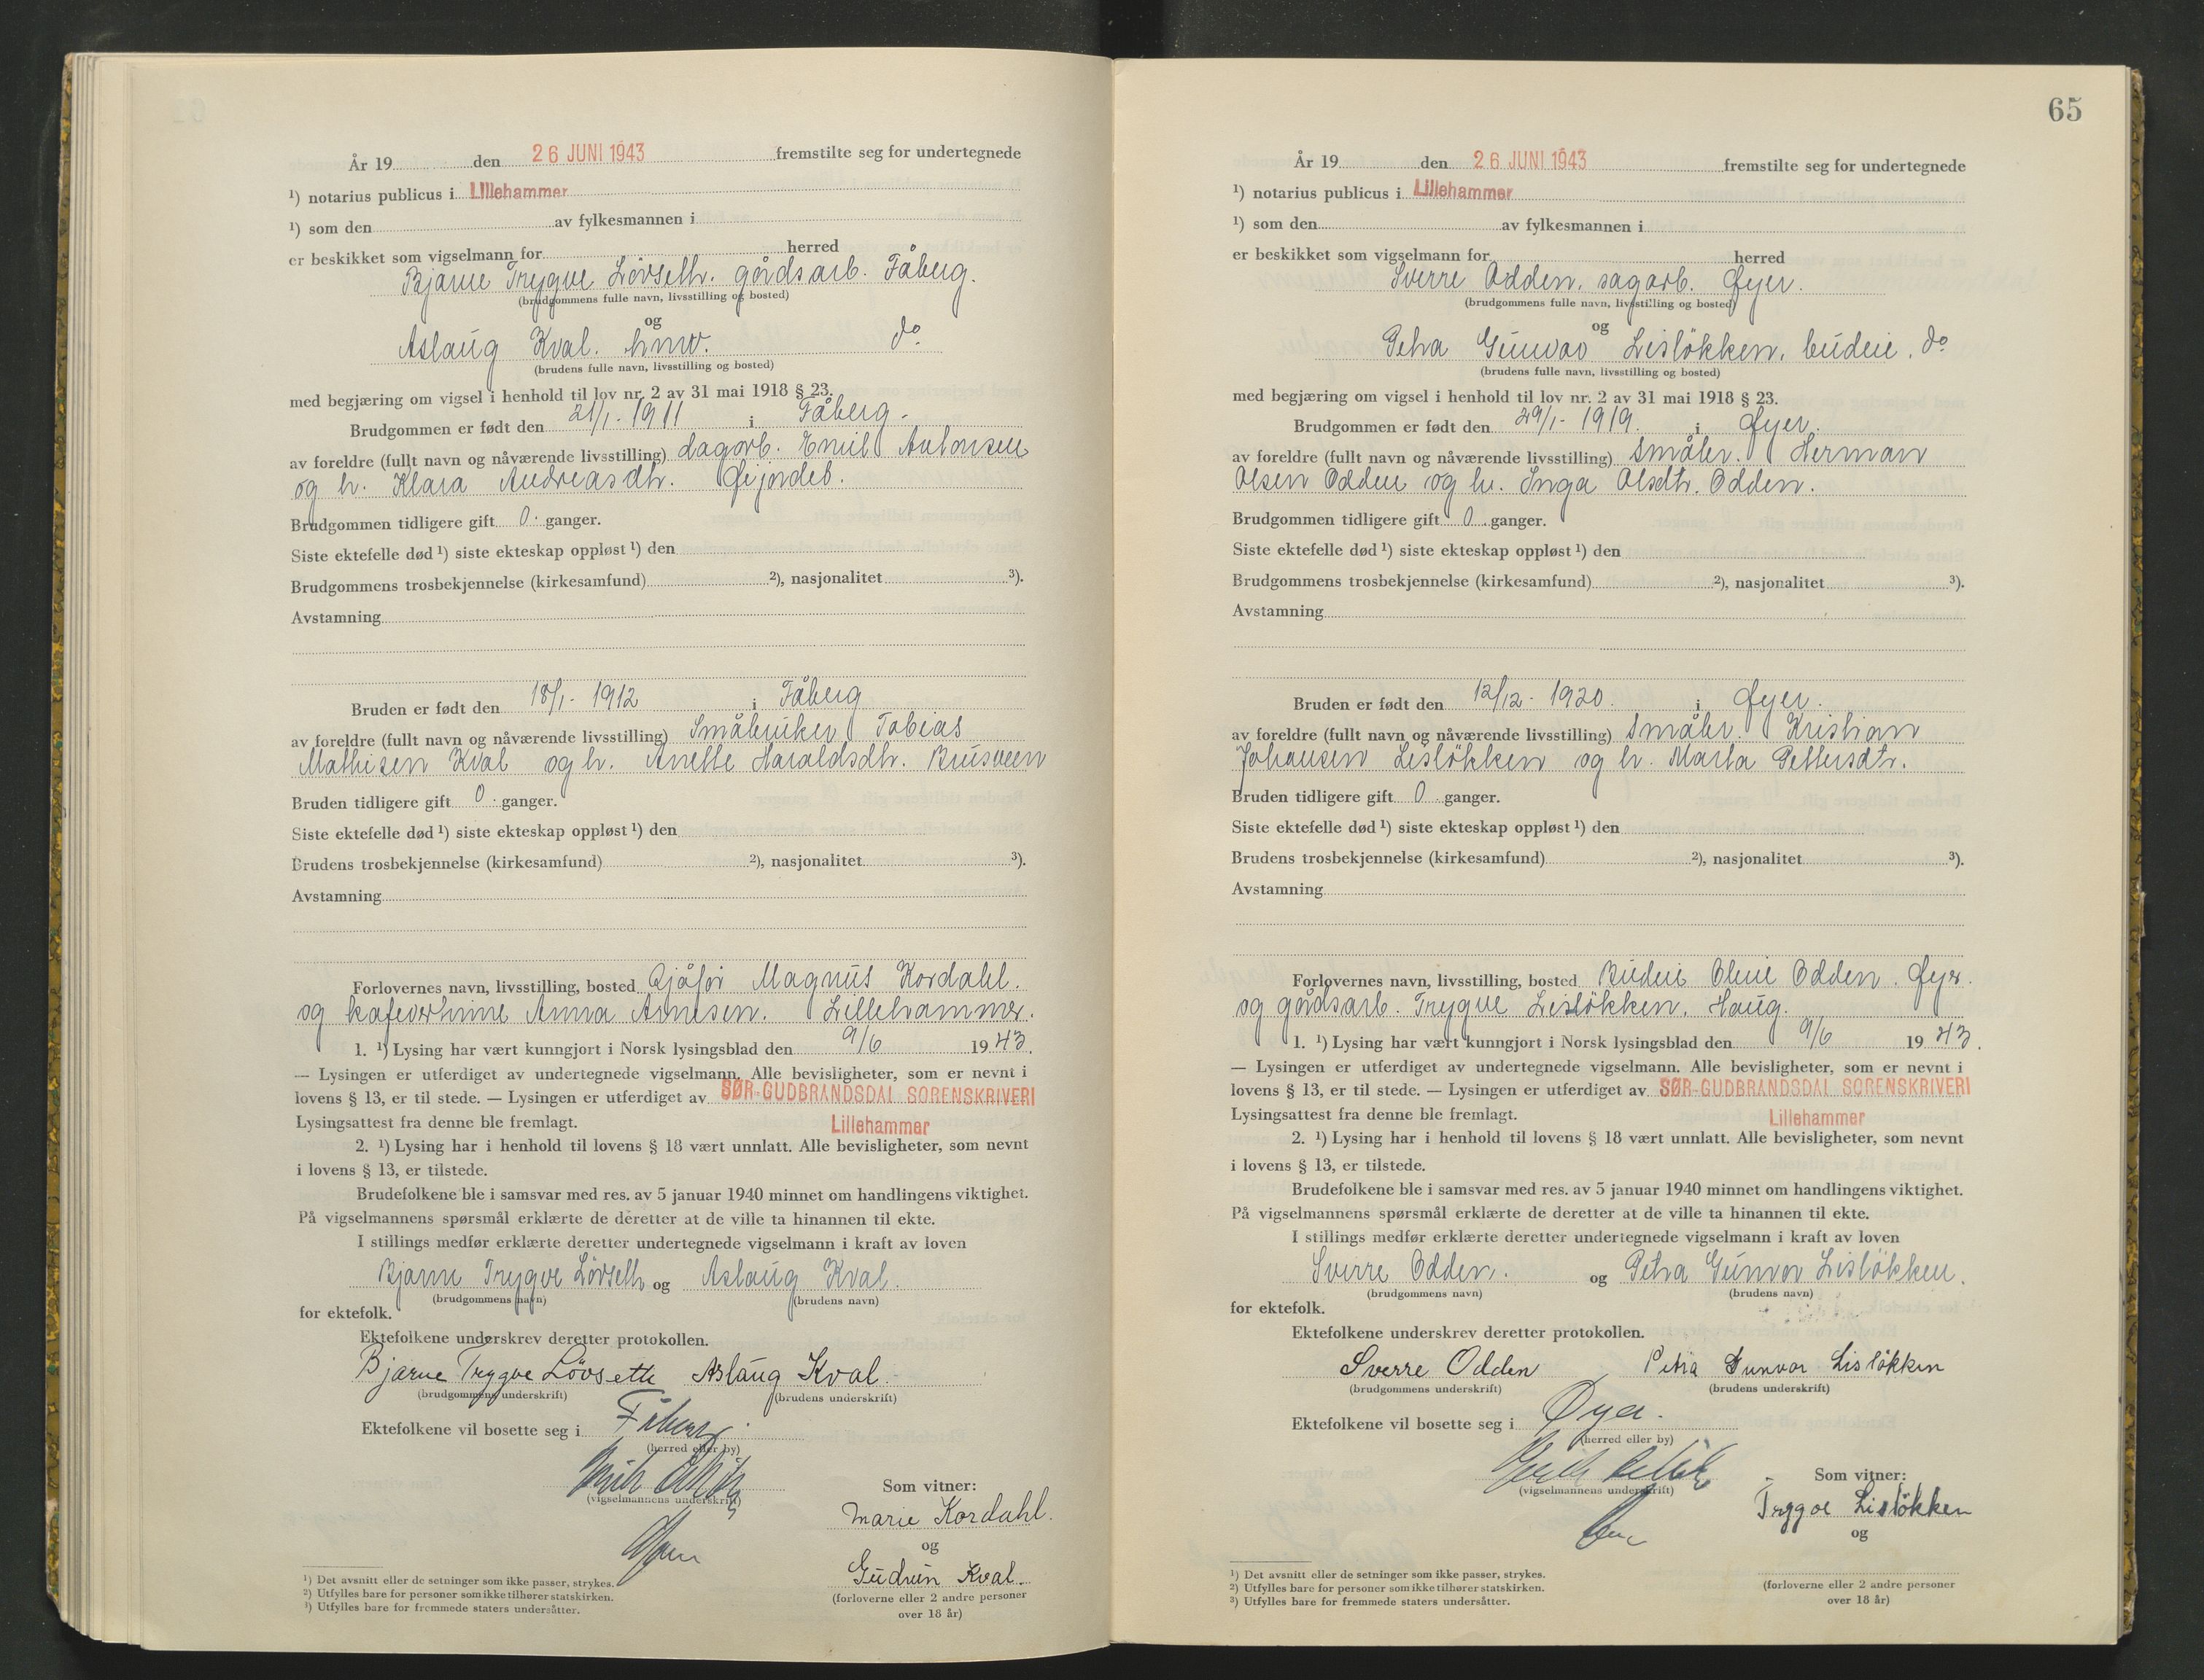 År 19 den 26 JUNI 1943 fremstilte seg for undertegnede
¹) notarius publicus i Lillehammer
¹) som den av fylkesmannen i
er beskikket som vigselmann for herred
Bjarne Trygve Lövseth. gårdsarb. Fåberg.
(brudgommens fulle navn, livsstilling og bosted)
og
Aslaug Kval. hmv. do
(brudens fulle navn, livsstilling og bosted)
med begjæring om vigsel i henhold til lov nr. 2 av 31 mai 1918 § 23.
Brudgommen er født den 21/1 - 1911 i Fåberg.
av foreldre (fullt navn og nåværende livsstilling) dagarb. Emil Antonsen
og h. Klara Andreasdtr.
Brudgommen tidligere gift 0. ganger.
Siste ektefelle død ¹) siste ekteskap oppløst ¹) den
Brudgommens trosbekjennelse (kirkesamfund) ²), nasjonalitet ³).
Avstamning
Bruden er født den 18/1 - 1912 i Fåberg
av foreldre (fullt navn og nåværende livsstilling) Småbruker Tobias
Mathisen Kval og h. Anette Haraldsdtr. Brusveen
Bruden tidligere gift 0. ganger.
Siste ektefelle død ¹) siste ekteskap oppløst ¹) den
Brudens trosbekjennelse (kirkesamfund) ²), nasjonalitet ³).
Avstamning
Forlovernes navn, livsstilling, bosted Sjåfør Magnus Kordahl.
og kafevertinne Anna Arnesen. Lillehammer.
1. ¹) Lysing har vært kunngjort i Norsk lysingsblad den 9/6 1943.
— Lysingen er utferdiget av undertegnede vigselmann. Alle bevisligheter, som er nevnt i
lovens § 13, er til stede. — Lysingen er utferdiget av SØR-GUDBRANDSDAL SORENSKRIVERI
Lysingsattest fra denne ble fremlagt. Lillehammer
2. ¹) Lysing har i henhold til lovens § 18 vært unnlatt. Alle bevisligheter, som nevnt
i lovens § 13, er tilstede.
Brudefolkene ble i samsvar med res. av 5 januar 1940 minnet om handlingens viktighet.
På vigselmannens spørsmål erklærte de deretter at de ville ta hinannen til ekte.
I stillings medfør erklærte deretter undertegnede vigselmann i kraft av loven
Bjarne Trygve Lövseth og Aslaug Kval.
(brudgommens navn) (brudens navn)
for ektefolk.
Ektefolkene underskrev deretter protokollen.
Bjarne Trygve Lövseth Aslaug Kval.
(brudgommens underskrift) (brudens underskrift)
Ektefolkene vil bosette seg i Fåberg
(herred eller by)
(vigselmannens underskrift)
Som vitner:
Marie Kordahl.
og
Gudrun Kval.
(forloverne eller 2 andre personer
over 18 år)
¹) Det avsnitt eller de setninger som ikke passer, strykes.
²) Utfylles bare for personer som ikke tilhører statskirken.
³) Utfylles bare for fremmede staters undersåtter.
65
År 19 den 26 JUNI 1943 fremstilte seg for undertegnede
¹) notarius publicus i Lillehammer
¹) som den av fylkesmannen i
er beskikket som vigselmann for herred
Sverre Odden. sagarb. Øyer.
(brudgommens fulle navn, livsstilling og bosted)
og
Petra Gunvor Lislökken, budeie, do
(brudens fulle navn, livsstilling og bosted)
med begjæring om vigsel i henhold til lov nr. 2 av 31 mai 1918 § 23.
Brudgommen er født den 29/1 - 1919. i Øyer.
av foreldre (fullt navn og nåværende livsstilling) småbr. Herman
Olsen Odden og h. Inga Olsdtr. Odden.
Brudgommen tidligere gift 0 ganger.
Siste ektefelle død ¹) siste ekteskap oppløst ¹) den
Brudgommens trosbekjennelse (kirkesamfund) ²), nasjonalitet ³).
Avstamning
Bruden er født den 12/12 - 1920. i Øyer.
av foreldre (fullt navn og nåværende livsstilling) småbr. Kristian
Johansen Lislökken og h. Marta Pettersdtr.
Bruden tidligere gift 0 ganger.
Siste ektefelle død ¹) siste ekteskap oppløst ¹) den
Brudens trosbekjennelse (kirkesamfund) ²), nasjonalitet ³).
Avstamning
Forlovernes navn, livsstilling, bosted Budeie Odden. Øyer.
og gårdsarb. Trygve Lislökken, Haug.
1. ¹) Lysing har vært kunngjort i Norsk lysingsblad den 9/6 1943.
— Lysingen er utferdiget av undertegnede vigselmann. Alle bevisligheter, som er nevnt i
lovens § 13, er til stede. — Lysingen er utferdiget av SØR-GUDBRANDSDAL SORENSKRIVERI
Lysingsattest fra denne ble fremlagt. Lillehammer
2. ¹) Lysing har i henhold til lovens § 18 vært unnlatt. Alle bevisligheter, som nevnt
i lovens § 13, er tilstede.
Brudefolkene ble i samsvar med res. av 5 januar 1940 minnet om handlingens viktighet.
På vigselmannens spørsmål erklærte de deretter at de ville ta hinannen til ekte.
I stillings medfør erklærte deretter undertegnede vigselmann i kraft av loven
Sverre Odden. og Petra Gunvor Lislökken.
(brudgommens navn) (brudens navn)
for ektefolk.
Ektefolkene underskrev deretter protokollen.
Sverre Odden Petra Gunvor Lislökken
(brudgommens underskrift) (brudens underskrift)
Ektefolkene vil bosette seg i Øyer.
(herred eller by)
(vigselmannens underskrift)
Som vitner:
Trygve Lislökken
og
(forloverne eller 2 andre personer
over 18 år)
¹) Det avsnitt eller de setninger som ikke passer, strykes.
²) Utfylles bare for personer som ikke tilhører statskirken.
³) Utfylles bare for fremmede staters undersåtter.